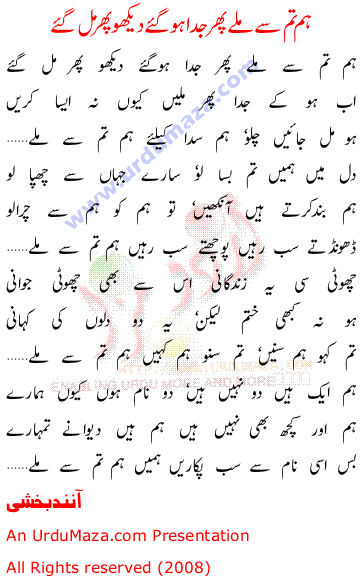 ہم تم سے ملے پھر جدا ہو گئے دیکھو پھر مل گئے
ہم تم سے ملے پھر جدا ہوگئے دیکھو پھر مل گئے
اب ہو کے جدا پھر ملیں کیوں نہ ایسا کریں
ہو مل جائیں چلو، ہم سدا کیلئے ہم تم سے ملے......
دل میں ہمیں تم بسا لو، سارے جہاں سے چھپا لو
ہم بندکرتے ہیں آنکھیں، تو ہم کو ہم سے چرالو
ڈھونڈتے سب رہیں پوچھتے سب رہیں ہم تم سے ملے......
چھوٹی سی یہ زندگانی اس سے بھی چھوٹی جوانی
ہو نہ کبھی ختم لیکن، یہ دو دلوں کی کہانی
تم کہو ہم سنیں، تم سنو ہم کہیں ہم تم سے ملے......
ہم ایک ہیں دو نہیں ہیں دو نام ہوں کیوں ہمارے
ہم اور کچھ بھی نہیں ہیں ہم ہیں دیوانے تمہارے
بس اسی نام سے سب پکاریں ہمیں ہم تم سے ملے......
آنند بخشی
An UrduMaza.com Presentation
All Rights reserved (2008)
www.urdumaza.com
ENABLING URDU MORE AND MORE